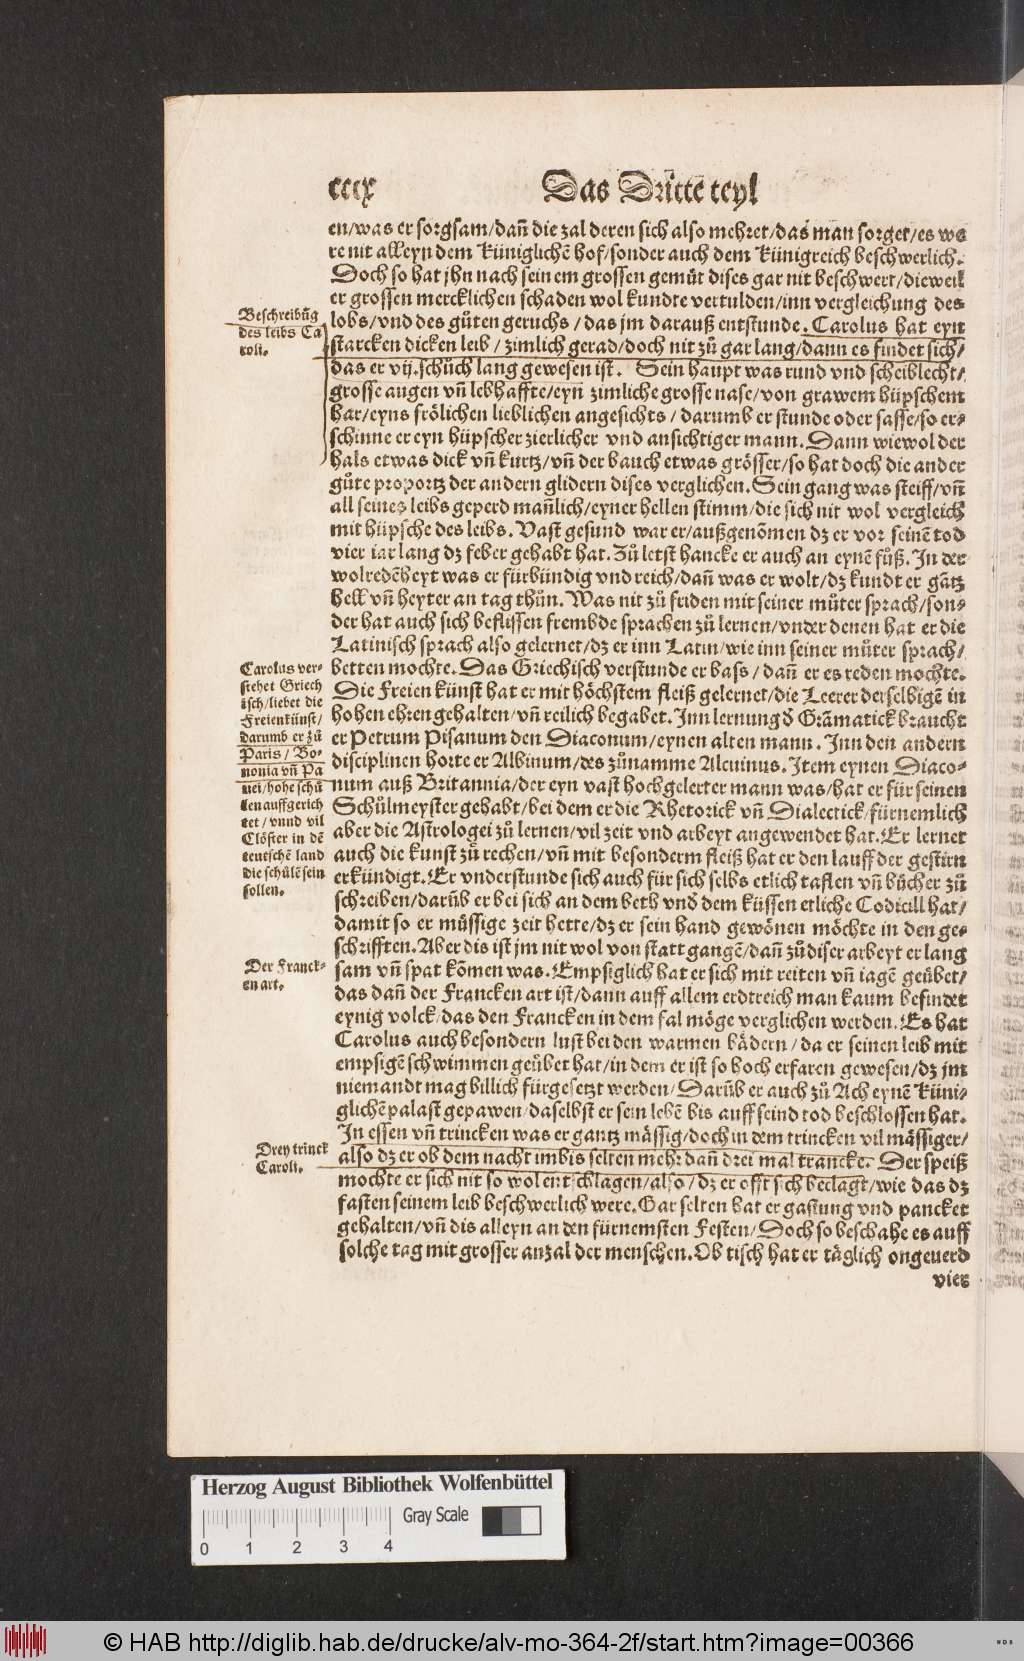 cccx
Das Drittẽ teyl
en/was er sorgsam/dañ die zal deren sich also mehret/das man sorget/es we
re nit alleyn dem Küniglichẽ hof/sonder auch dem Künigreich beschwerlich.
Doch so hat jhn nach seinem grossen gemüt dises gar nit beschwert/dieweil
er grossen mercklichen schaden wol kundte vertulden/inn vergleichung des
lobs/vnd des gůten geruchs/das jm darauß entstunde. Carolus hat eyn
starcken dicken leib/zimlich gerad/doch nit zů gar lang/dann es findet sich/
das er vij.schůch lang gewesen ist. Sein haupt was rund vnd scheiblecht/
grosse augen vñ lebhaffte/eyn zimliche grosse nase/von grawem hüpschem
har/eyns frölichen lieblichen angesichts/darumb er stunde oder sasse/so er-
schinne er eyn hüpscher zierlicher vnd ansichtiger mann. Dann wiewol der
hals etwas dick vñ kurtz/vñ der bauch etwas grösser/so hat doch die ander
gůte proportz der andern glidern dises verglichen. Sein gang was steiff/vñ
all seines leibs geperd mañlich/eyner hellen stimm/die sich nit wol vergleich
mit hüpsche des leibs. Vast gesund war er/außgenõmen dz er vor seinẽ tod
vier iar lang dz feber gehabt hat. Zů letst hancke er auch an eynẽ fůß. In der
wolredẽheyt was er fürbündig vnd reich/dañ was er wolt/dz kundt er gãtz
hell vñ heyter an tag thůn. Was nit zů friden mit seiner můter sprach/son-
der hat auch sich beflissen frembde sprachen zů lernen/vnder denen hat er die
Latinisch sprach also gelernet/dz er inn Latin/wie inn seiner můter sprach/
betten mochte. Das Griechisch verstunde er bass/dañ er es reden mochte.
Die Freien künst hat er mit höchstem fleiß gelernet/die Leerer derselbigẽ in
hohen ehren gehalten/vñ reilich begabet. Inn lernung ð Grãmatick braucht
er Petrum Pisanum den Diaconum/eynen alten mann. Inn den andern
disciplinen horte er Albinum/des zůnamme Alcuinus. Item eynen Diaco-
num auß Britannia/der eyn vast hochgelerter mann was/hat er für seinen
Schůlmeyster gehabt/bei dem er die Rhetorick vñ Dialectick/fürnemlich
aber die Astrologei zů lernen/vil zeit vnd arbeyt angewendet hat. Er lernet
auch die kunst zů rechen/vñ mit besonderm fleiß hat er den lauff der gestirn
erkündigt. Er vnderstunde sich auch für sich selbs etlich taflen vñ bůcher zů
schreiben/darũb er bei sich an dem beth vnð dem küssen etliche Codicill hat/
damit so er můssige zeit hette/dz er sein hand gewönen möchte in den ge-
schrifften. Aber dis ist jm nit wol von statt gangẽ/dañ zů diser arbeyt er lang
sam vñ spat kõmen was. Empsiglich hat er sich mit reiten vñ iagẽ geübet/
das dañ der Francken art ist/dann auff allem erdtreich man kaum befindet
eynig volck/das den Francken in dem fal möge verglichen werden. Es hat
Carolus auch besondern lust bei den warmen bädern/da er seinen leib mit
empsigẽ schwimmen geübet hat/in dem er ist so hoch erfaren gewesen/dz jm
niemandt mag billich fürgesetzt werden/Darũb er auch zů Ach eynẽ Küni-
glichẽ palast gepawen/daselbst er sein lebẽ bis auff seind tod beschlossen hat.
In essen vñ trincken was er gantz mässig/doch in dem trincken vil mässiger/
also dz er ob dem nacht imbis selten mehr dañ drei mal trancke. Der speiß
mochte er sich nit so wol entschlagen/also/dz er offt sich beclagt/wie das dz
fasten seinem leib beschwerlich were. Gar selten hat er gastung vnd pancket
gehalten/vñ dis alleyn an den fürnemsten Festen/Doch so beschahe es auff
solche tag mit grosser anzal der menschen. Ob tisch hat er täglich ongeuerd
vier
Beschreibũg
des leibs Ca
roli.
Carolus ver-
stehet Griech
isch/liebet die
Freien künst/
darumb er zů
Paris/Bo-
nonia vñ Pa
uei/hohe schů
len auffgerich
tet/vnnd vil
Clöster in dẽ
teutschẽ land
die schůlẽ sein
sollen.
Der Franck-
en art.
Drey trinck
Caroli.
Herzog August Bibliothek Wolfenbüttel
Gray Scale
0 1 2 3 4
© HAB http://diglib.hab.de/drucke/alv-mo-364-2f/start.htm?image=00366